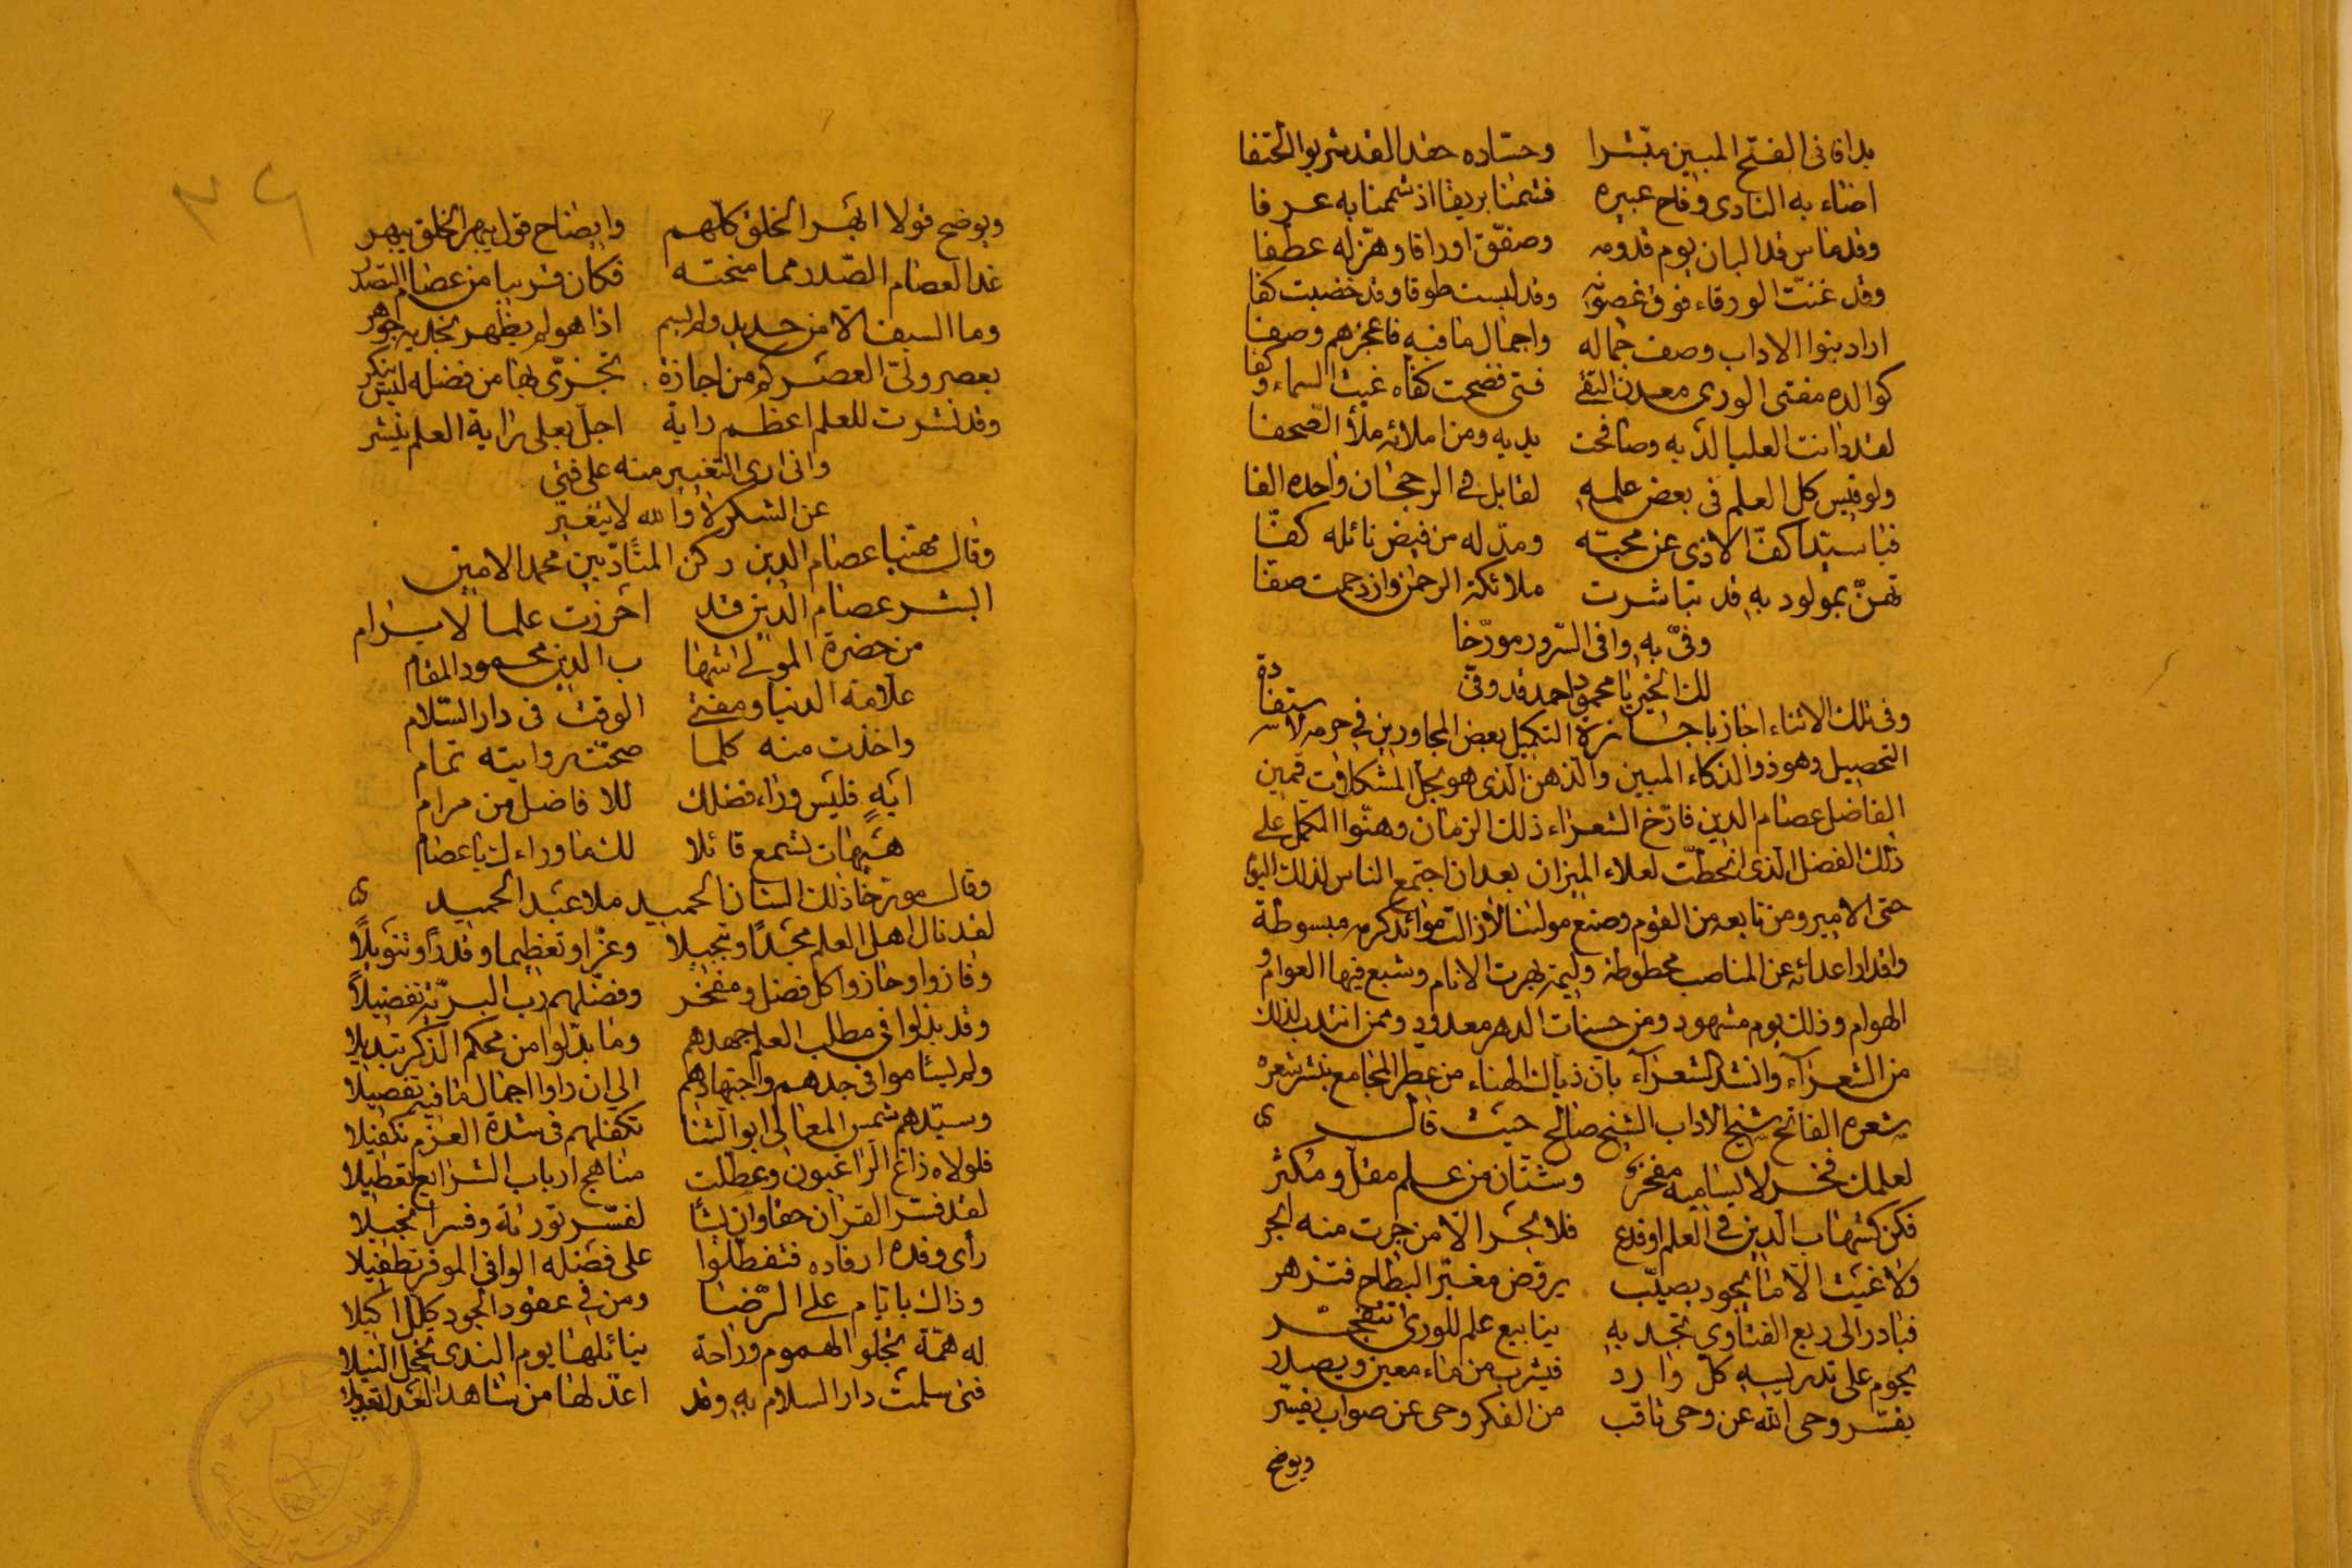 بدا قافى الفتح المبين مبشرا وحساده حقدا لقد شربوا الحتفا
اضاء به النادى وفاح عبيره فشمنا بريقا اذ شممنا به عرفا
وقد ماس قد البان يوم قدومه وصفق اوراقا وهز له عطفا
وقد غنت الورقاء فوق غصونه وقد لبست طوقا وقد خضبت كفا
اراد بنوا الاداب وصف جماله واجمال ما فيه فاعجزهم وصفا
كوالده مفتى الورى معدن التقى فتى فضحت كفاه غيث السماء وكفا
لقد دانت العليا لديه وصافحت يديه ومن املائه ملأ الصحفا
ولو قيس كل العلم فى بعض علمه لقابل فى الرجحان واحده الفا
فيا سيدا كف الاذى عن محبته ومد له من فيض نائله كفا
تهن بمولود به قد تباشرت ملائكة الرحمن وازدحمت صفا
وفى به وافى السرور مورخا
لك الخير يا محمود احمد قد وفى
وفى تلك الاثناء اجاز باجازة التكميل بعض المجاورين فى حرمه لاستفادة
التحصيل وهو ذو الذكاء المبين والذهن الذى هو بحل المشكلات قمين
الفاضل عصام الدين فارخ الشعراء ذلك الزمان وهنوا المكمل على
ذلك الفضل الذى انحطت لعلاه الميزان بعد ان اجتمع الناس لذلك اليوم
حتى الامير ومن تابعه من القوم وصنع مولنا لازالت موائد كرمه مبسوطة
واقدار اعدائه عن المناصب محطوطة وليمة بهرت الانام وشبع فيها العوام و
الهوام وذلك يوم مشهود ومن حسنات الدهر معدود وممن انتدب لذلك
من الشعراء وانشد الشعراء بان ذياك الهناء من عطر المجامع بنشر شعره
شعره الفاتح شيخ الاداب الشيخ صالح حيث قال
لعلمك فخر لا يساميه مفخر وشتان من علم مقل ومكثر
فكن كشهاب الدين فى العلم او فدع فلا بحر الا من جرت منه ابحر
ولا غيث الا ما يجود بصيب يروض مغبر البطاح فتزهر
فبادر الى ربع الفتاوى تجد به ينابيع علم للورى تتفجر
يحوم على تدريسه كل وارد فيشرب من ماء معين ويصدر
يفسر وحى الله عن وحى ثاقب من الفكر وحى عن صواب يفسر
ويوضح
٣٤
ويوضح قولا ابهر الخلق كلهم وايضاح قول يبهر الخلق يبهر
غدا لعصام الصدر مما منحته فكان قريبا من عصام التصدر
وما السيف الا من حديد ولم يسم اذا هو لم يظهر بحديه جوهر
بعصر ولى العصر كم من اجازة تجزى بها من فضله ليس ينكر
وقد نشرت للعلم اعظم راية اجل بعلى راية العلم ينشر
وانى ارى التغيير منه على فتى
عن الشكر لا والله لا يتغير
وقال مهنيا عصام الدين ركن المتأدبين محمد الامين
ابشر عصام الدين قد احرزت علما لا يرام
من حضرة المولى شها ب الدين محمود المقام
علامة الدنيا ومفتى الوقت فى دار السلام
واخذت منه كلما صحت روايته تمام
ايه فليس وراء فضلك للافاضل من مرام
هيهات تسمع قائلا لك ما وراءك يا عصام
وقال مورخا ذلك الشان الحميد ملا عبد الحميد
لقد نال اهل العلم مجدا وتبجيلا وعزا وتعظيما وقدرا وتنويلا
وفازوا وحازوا كل فضل ومفخر وفضلهم رب البرية تفضيلا
وقد بذلوا فى مطلب العلم جهدهم وما بدلوا من محكم الذكر تبديلا
ولم يسأموا فى جدهم واجتهادهم الى ان راوا اجمال ما فيه تفصيلا
وسيدهم شمس المعالى ابو الثنا تكفلهم فى شدة العزم تكفيلا
فلولاه زاغ الراغبون وعطلت مناهج ارباب الشرائع تعطيلا
لقد فسر القران حقا وان يشا لفسر توراة وفسر انجيلا
رأى وفده ارفاده فتفطلوا على فضله الوافى الموفر تطفيلا
وذاك بايام على الرضا ومن فى عقود الجود كلل اكليلا
له همة تجلو الهموم وراحة بنائلها يوم الندى تخجل النيلا
فتى سلمت دار السلام به وقد اعد لها من شاهد العدل تعديلا